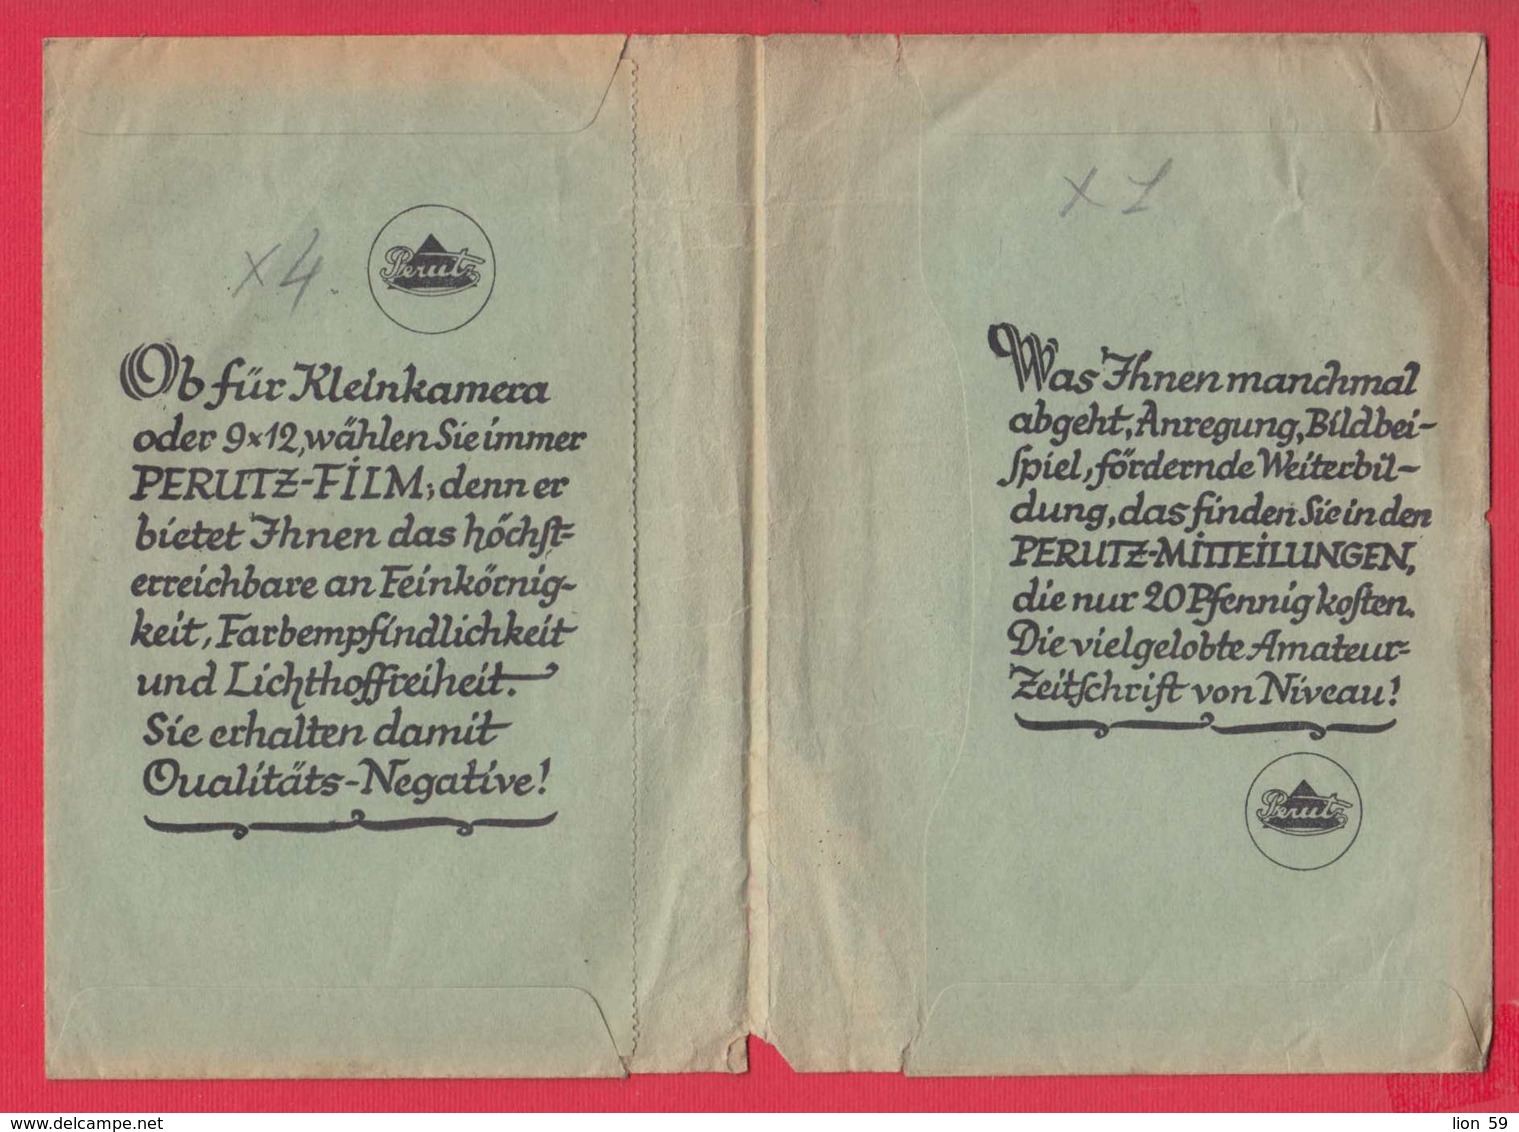 x 4.
Perutz
Ob für Kleinkamera
oder 9x12, wählen Sie immer
PERUTZ-FILM; denn er
bietet Ihnen das höchst=
erreichbare an Feinkörnig-
keit, Farbempfindlichkeit
und Lichthoffreiheit.
Sie erhalten damit
Qualitäts-Negative!
x 1
Was Ihnen manchmal
abgeht, Anregung, Bildbei-
spiel, fördernde Weiterbil-
dung, das finden Sie in den
PERUTZ-MITTEILUNGEN,
die nur 20 Pfennig kosten.
Die vielgelobte Amateur=
Zeitschrift von Niveau!
Perutz
www.delcampe.net
lion 59